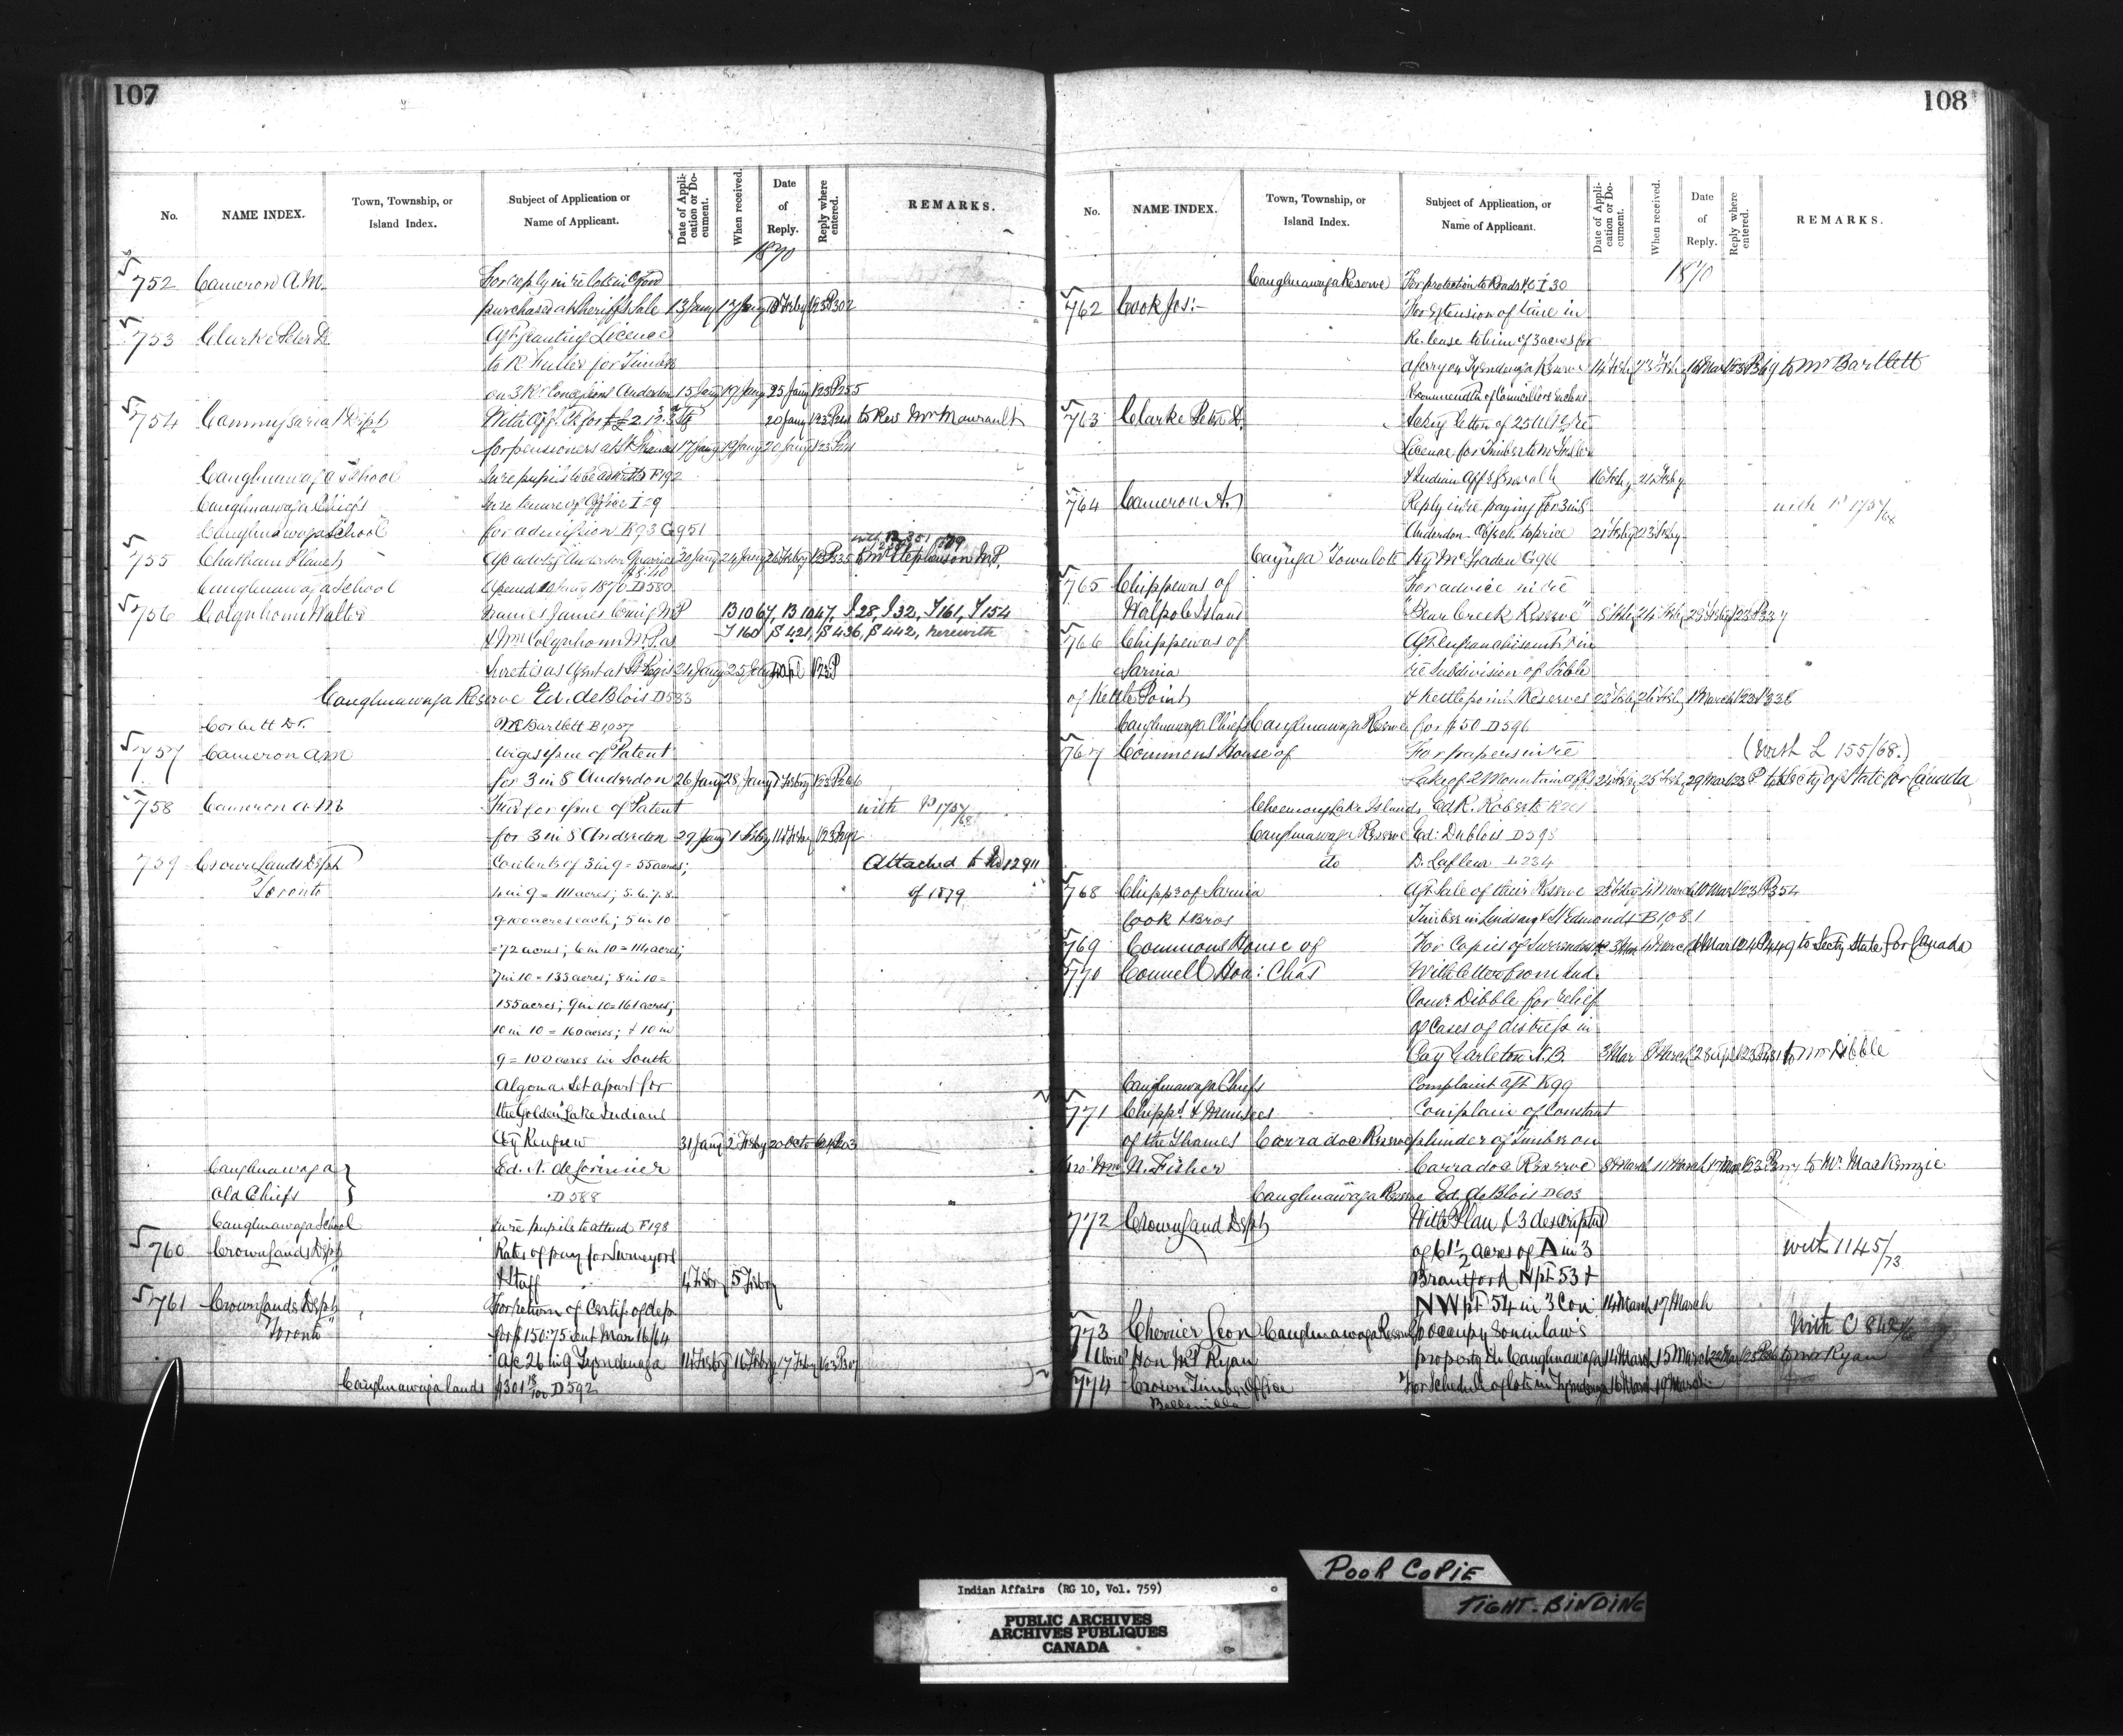 107
No. NAME INDEX. Town, Township, or Island Index. Subject of Application or Name of Applicant. Date of Application or Document. When received. Date of Reply. Reply where entered. REMARKS.
1870
752 Cameron A.M. For reply in re lots in
purchased at Sheriff's Sale 13 Jany 17 Jany 18 Feby 123 P302
753 Clarke Peter D. Agst granting Licence
to R. Fuller for Timber
on 3 Rd Concession Anderdon 15 Jany 19 Jany 25 Jany 123 P255
754 Commissariat Dept With for 20 Jany to Rev Mr Maurault
for pensioners at St Francis 17 Jany 19 Jany 20 Jany 123
Caughnawaga School In re pupils to be admitted F192
Caughnawaga Chiefs In re tenure of Office I-9
Caughnawaga School for admission K93 G951
755 Chatham Planet 20 Jany 24 Jany to Mr Stephenson M.P.
Caughnawaga School 1870 D580
756 Colquhoun Walter names James Craig M.P B1067, B1047, J28, J32, J161, J154
& Wm Colquhoun M.P. as J160 S421, S436, S442, herewith
Sureties as Agent at St Regis 24 Jany 25 Jany 123 P
Caughnawaga Reserve Ed. de Blois D583
Corbett Dr. Mr Bartlett B1057
757 Cameron AM urges issue of Patent
for 3 in 8 Anderdon 26 Jany 28 Jany 1 Feby 123 P266
758 Cameron A.M. for issue of Patent with P 1757/68
for 3 in 8 Anderdon 29 Jany 1 Feby 14 Feby 123 P292
759 Crown Lands Dept Contents of 3 in 9 = 55 acres; Attached to No 12911
Toronto 4 in 9 = 111 acres; 5.6.7.8. of 1879
9 100 acres each; 5 in 10
= 72 acres; 6 in 10 = 114 acres;
7 in 10 = 133 acres; 8 in 10 =
155 acres; 9 in 10 = 161 acres;
10 in 10 = 160 acres; & 10 in
9 = 100 acres in South
Algona. Set apart for
the "Golden Lake Indians
Cty Renfrew 31 Jany 2 Feby 20 Octo 124 P203
Caughnawaga } Ed. N. de Lorimier
Old Chiefs } D588
Caughnawaga School In re pupils to attend F198
760 Crown Lands Dept Rates of pay for Surveyors
& Staff 4 Feby 5 Feby
761 Crown Lands Dept For return of Certif. of dep.
"Toronto" for $150.75 sent Mar 16/64
a/c 26 in 9 Tyendinaga 14 Feby 16 Feby 17 Feby 123 P307
Caughnawaga lands D592
108
No. NAME INDEX. Town, Township, or Island Index. Subject of Application, or Name of Applicant. Date of Application or Document. When received. Date of Reply. Reply where entered. REMARKS.
1870
Caughnawaga Reserve For protection to Roads &c I 30
762 Cook Jos:- For Extension of time in
Re. lease to him of 3 acres for
a ferry on Tyendinaga Reserve 14 Feby 17 Feby 16 Mar 123 P369 to Mr Bartlett
Recommendtn of Councillors enclosed
763 Clarke Peter D. Ackg letter of 25 Ult re
License for Timber to Mr
& Indian Affs generally 16 Feby 21 Feby
764 Cameron A. Reply in re paying for 3 in 8 with P 1757/68
Anderdon. Objects to price 21 Feby 23 Feby
Cayuga Town lots Hy McFaden G966
765 Chippewas of For advice in re
Walpole Island "Bear Creek Reserve" 8 Feby 24 Feby 28 Feby 123 P337
766 Chippewas of Agst enfranchisement & in
Sarnia re Subdivision of Sable
of Kettle Point & Kettle point Reserves 23 Feby 26 Feby 1 March 123 P338
Caughnawaga Chiefs Caughnawaga Reserve for $50 D596
767 Commons House of For papers in re (with L 155/68.)
Lake of 2 Mountain affs 24 Feby 25 Feby 29 Mar 123 P to Secty of State for Canada
Cheemong Lake Islands Ed R. Roberts R261
Caughnawaga Reserve Ed: Deblois D598
do D. Lafleur L234
768 Chipps of Sarnia Agst Sale of their Reserve 28 Feby 4 March 10 Mar 123 P354
Cook & Bros Timber in Lindsay & St Edmonds B1081
769 Commons House of For Copies of Surrenders 3 Mar 4 March 6 Mar 124 P449 to Secty State for Canada
770 Connell Hon: Chas With letter from Ind.
Comr. Dibble for relief
of Cases of distress in
Coy Carleton N.B. 3 Mar 8 March 28 Apl 123 P481 to Mr Dibble
Caughnawaga Chiefs Complaint agst K99
771 Chipps. & Munsees Complain of Constant
of the Thames Carradoc Reserve plunder of timber on
pro: Wm N. Fisher Carradoc Reserve 8 March 11 March 17 Mar 123 P to Mr. MacKenzie
Caughnawaga Reserve Ed. de Blois D603
772 Crown Land Dept With Plan & 3 descriptns
of 61 1/2 acres of A in 3 with 1145/73
Brantford N pt 53 &
NW pt 54 in 3 Con 14 March 17 March
773 Cherrier Leon Caughnawaga Reserve To occupy Son in law's With C 842/68
Hon M P Ryan property in Caughnawaga 14 March 15 March 22 Mar to Mr Ryan
774 Crown Timber Office For Schedule of lots in Tyendinaga 16 March 19 March
Belleville
Poor Copie
Tight-Binding
Indian Affairs (RG 10, Vol. 759)
PUBLIC ARCHIVES
ARCHIVES PUBLIQUES
CANADA